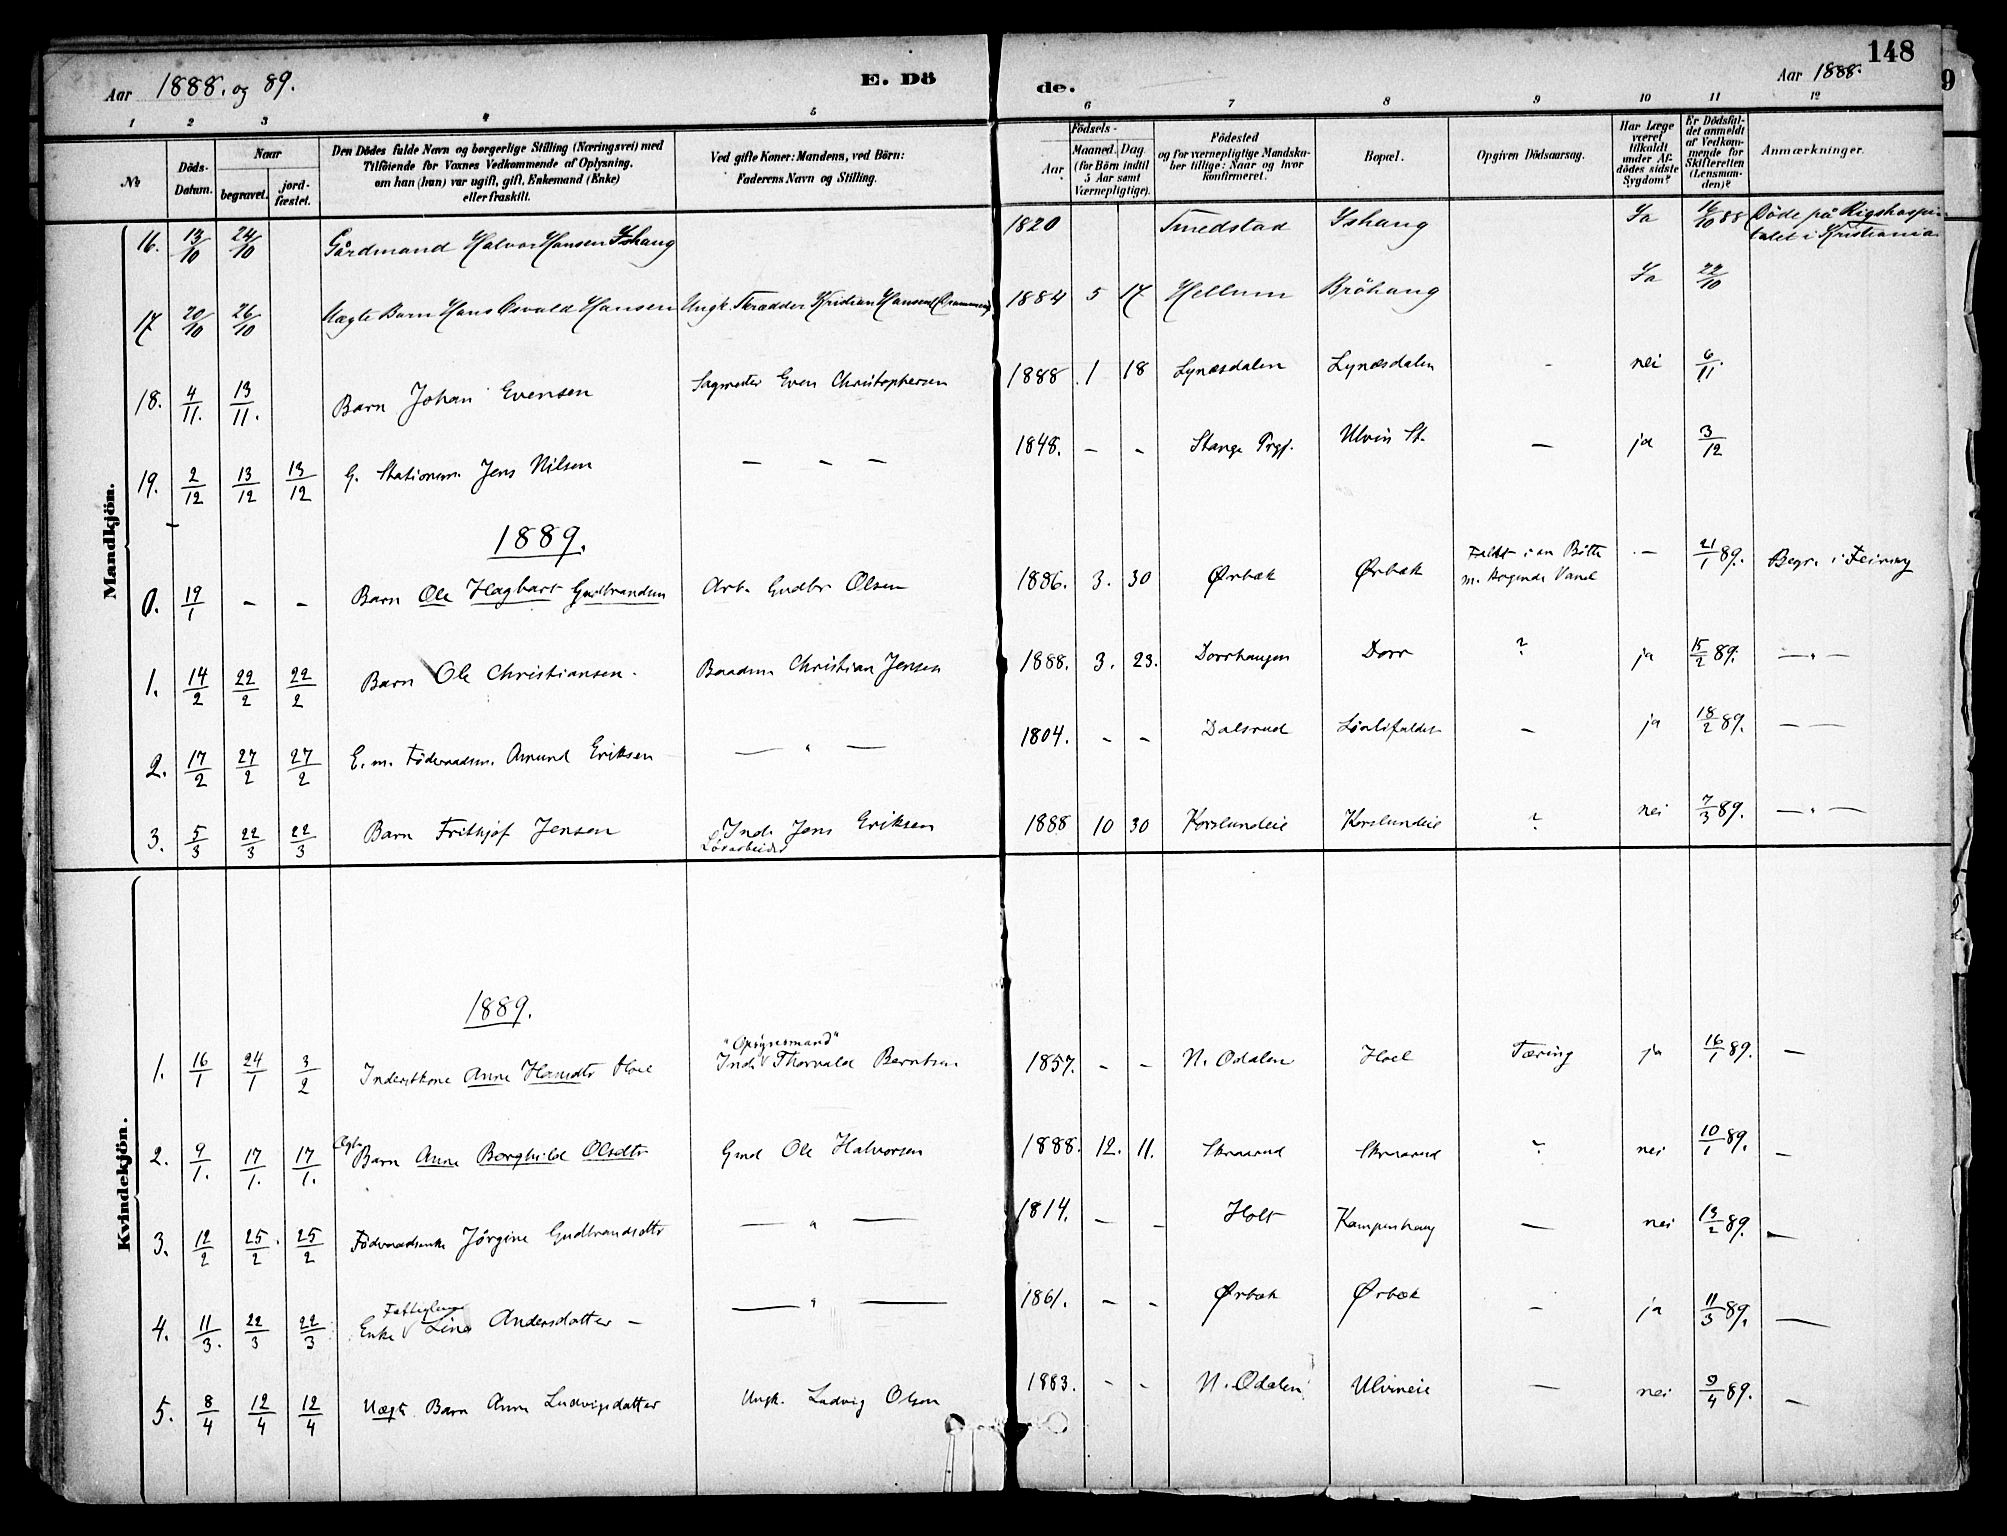 148
Aar 1888. og 89.
E. Dö
de.
Aar 1888.
1 2 3 4 5 6 7 8 9 10 11 12
№
Döds-Datum.
Naar
begravet.
jordfæstet.
Den Dödes fulde Navn og borgerlige Stilling (Næringsvei) med
Tilföiende for Voxnes Vedkommende af Oplysning,
om han (hun) var ugift, gift, Enkemand (Enke)
eller fraskilt.
Ved gifte Koner: Mandens, ved Börn:
Faderens Navn og Stilling.
Födsels-
Aar
Maaned. Dag.
(for Börn indtil
5 Aar samt
Værnepligtige).
Födested
og for værnepligtige Mandska-
ber tillige: Naar og hvor
konfirmeret.
Bopæl.
Opgiven Dödsaarsag.
Har Læge
været
tilkaldt
under Af-
dödes sidste
Sygdom?
Er Dödsfal-
det anmeldt
af Vedkom-
mende for
Skifteretten
(Lensman-
den)?
Anmærkninger.
Mandkjön.
16. 13/10 24/10 Gårdmand Halvor Hansen Ishaug 1820 Smedstad Ishaug Ja 16/10 88 Döde på Rigshospi-
talet i Kristiania
17 20/10 26/10 Uægte Barn Hans Osvald Hansen Ungk. Skrædder Kristian Hansen 1884 5 17 Hellum Bröhaug Ja 22/10
18. 4/11. 13/11. Barn Johan Evensen Sagmester Even Christophersen 1888 1 18 Lynæsdalen Lynæsdalen - nei 6/11.
19. 2/12 13/12 13/12 G. Stationsm. Jens Nilsen — — — 1848. - - Stange Prgj. Ulvin St. — ja 3/12
1889.
0. 19/1 - - Barn Ole Hagbart Gudbrandsen Arb. Gudbr Olsen 1886. 3. 30 Ørbæk Ørbæk Faldt i en Bøtte
m. kogende Vand — 21/1 89. Begr. i Feiring
1. 14/2 22/2 22/2 Barn Ole Christiansen. Baadm Christian Jensen 1888. 3. 23. Dorrhaugen Dorr ? ja 15/2 89. —"—
2. 17/2 27/2 27/2 E. m. Föderaadsm. Amund Eriksen — " — 1804. - - Dalsrud — ja 18/2 89. — —
3. 5/3 22/3 22/3 Barn Frithjof Jensen Ind. Jens Eriksen
Løsarbeider 1888 10 30 Korslundeie Korslundeie ? nei 7/3 89. —"—
Kvindekjön.
1889.
"Opsynsmand"
1. 16/1 24/1 3/2 Inderstkone Anne Hansdtr Hoel Ind. Thorvald Berntsen 1857. - - N. Odalen Hoel Tæring ja 16/1 89. —
Ægte
2. 9/1. 17/1. 17/1. Barn Anne Borghild Olsdtr Gmd Ole Halvorsen 1888. 12. 11. Skraarud Skraarud ? nei 10/1 89. —
3. 12/2 25/2 25/2 Föderaadsenke Jørgine Gudbrandsdtr — " — 1814. - - Holt Kampenhaug — nei 13/2 89. —
Fattiglem
4. 11/3. 22/3 22/3 Enke Lina Andersdatter — — " — 1861. - - Ørbæk Ørbæk — ja 11/3 89. —
5. 8/4 12/4 12/4 Uægt. Barn Anne Ludvigsdatter Ungk. Ludvig Olsen 1883. - - N. Odalen Ulvineie — nei 9/4 89. —